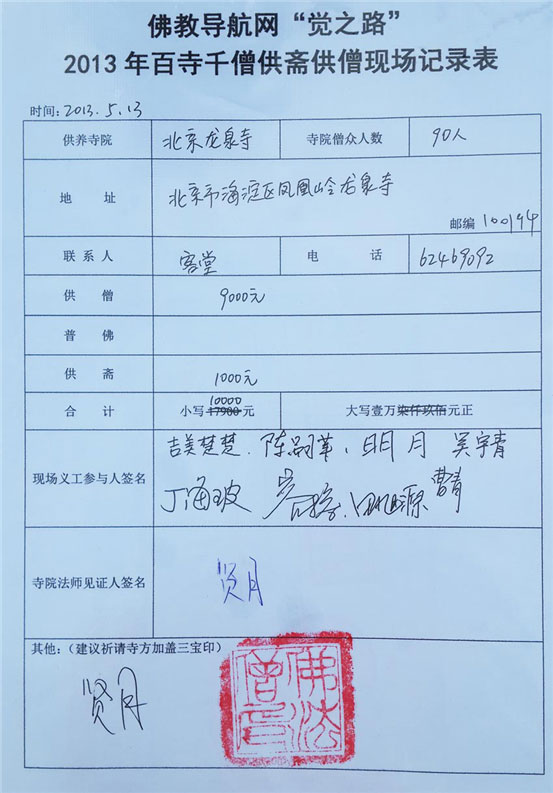 佛教导航网“觉之路”
2013年百寺千僧供斋供僧现场记录表
时间：2013.5.13
供养寺院 北京龙泉寺 寺院僧众人数 90人
地 址 北京市海淀区凤凰岭龙泉寺
邮编 100194
联系人 客堂 电 话 62469092
供 僧 9000元
普 佛
供 斋 1000元
10000
合 计 小写17900元 大写壹万柒仟玖佰元正
吉美楚楚、陈嗣革、明月 吴宇青
现场义工参与人签名
丁海玻 曹青
寺院法师见证人签名 贤月
其他：（建议祈请寺方加盖三宝印）
贤月
佛法僧宝